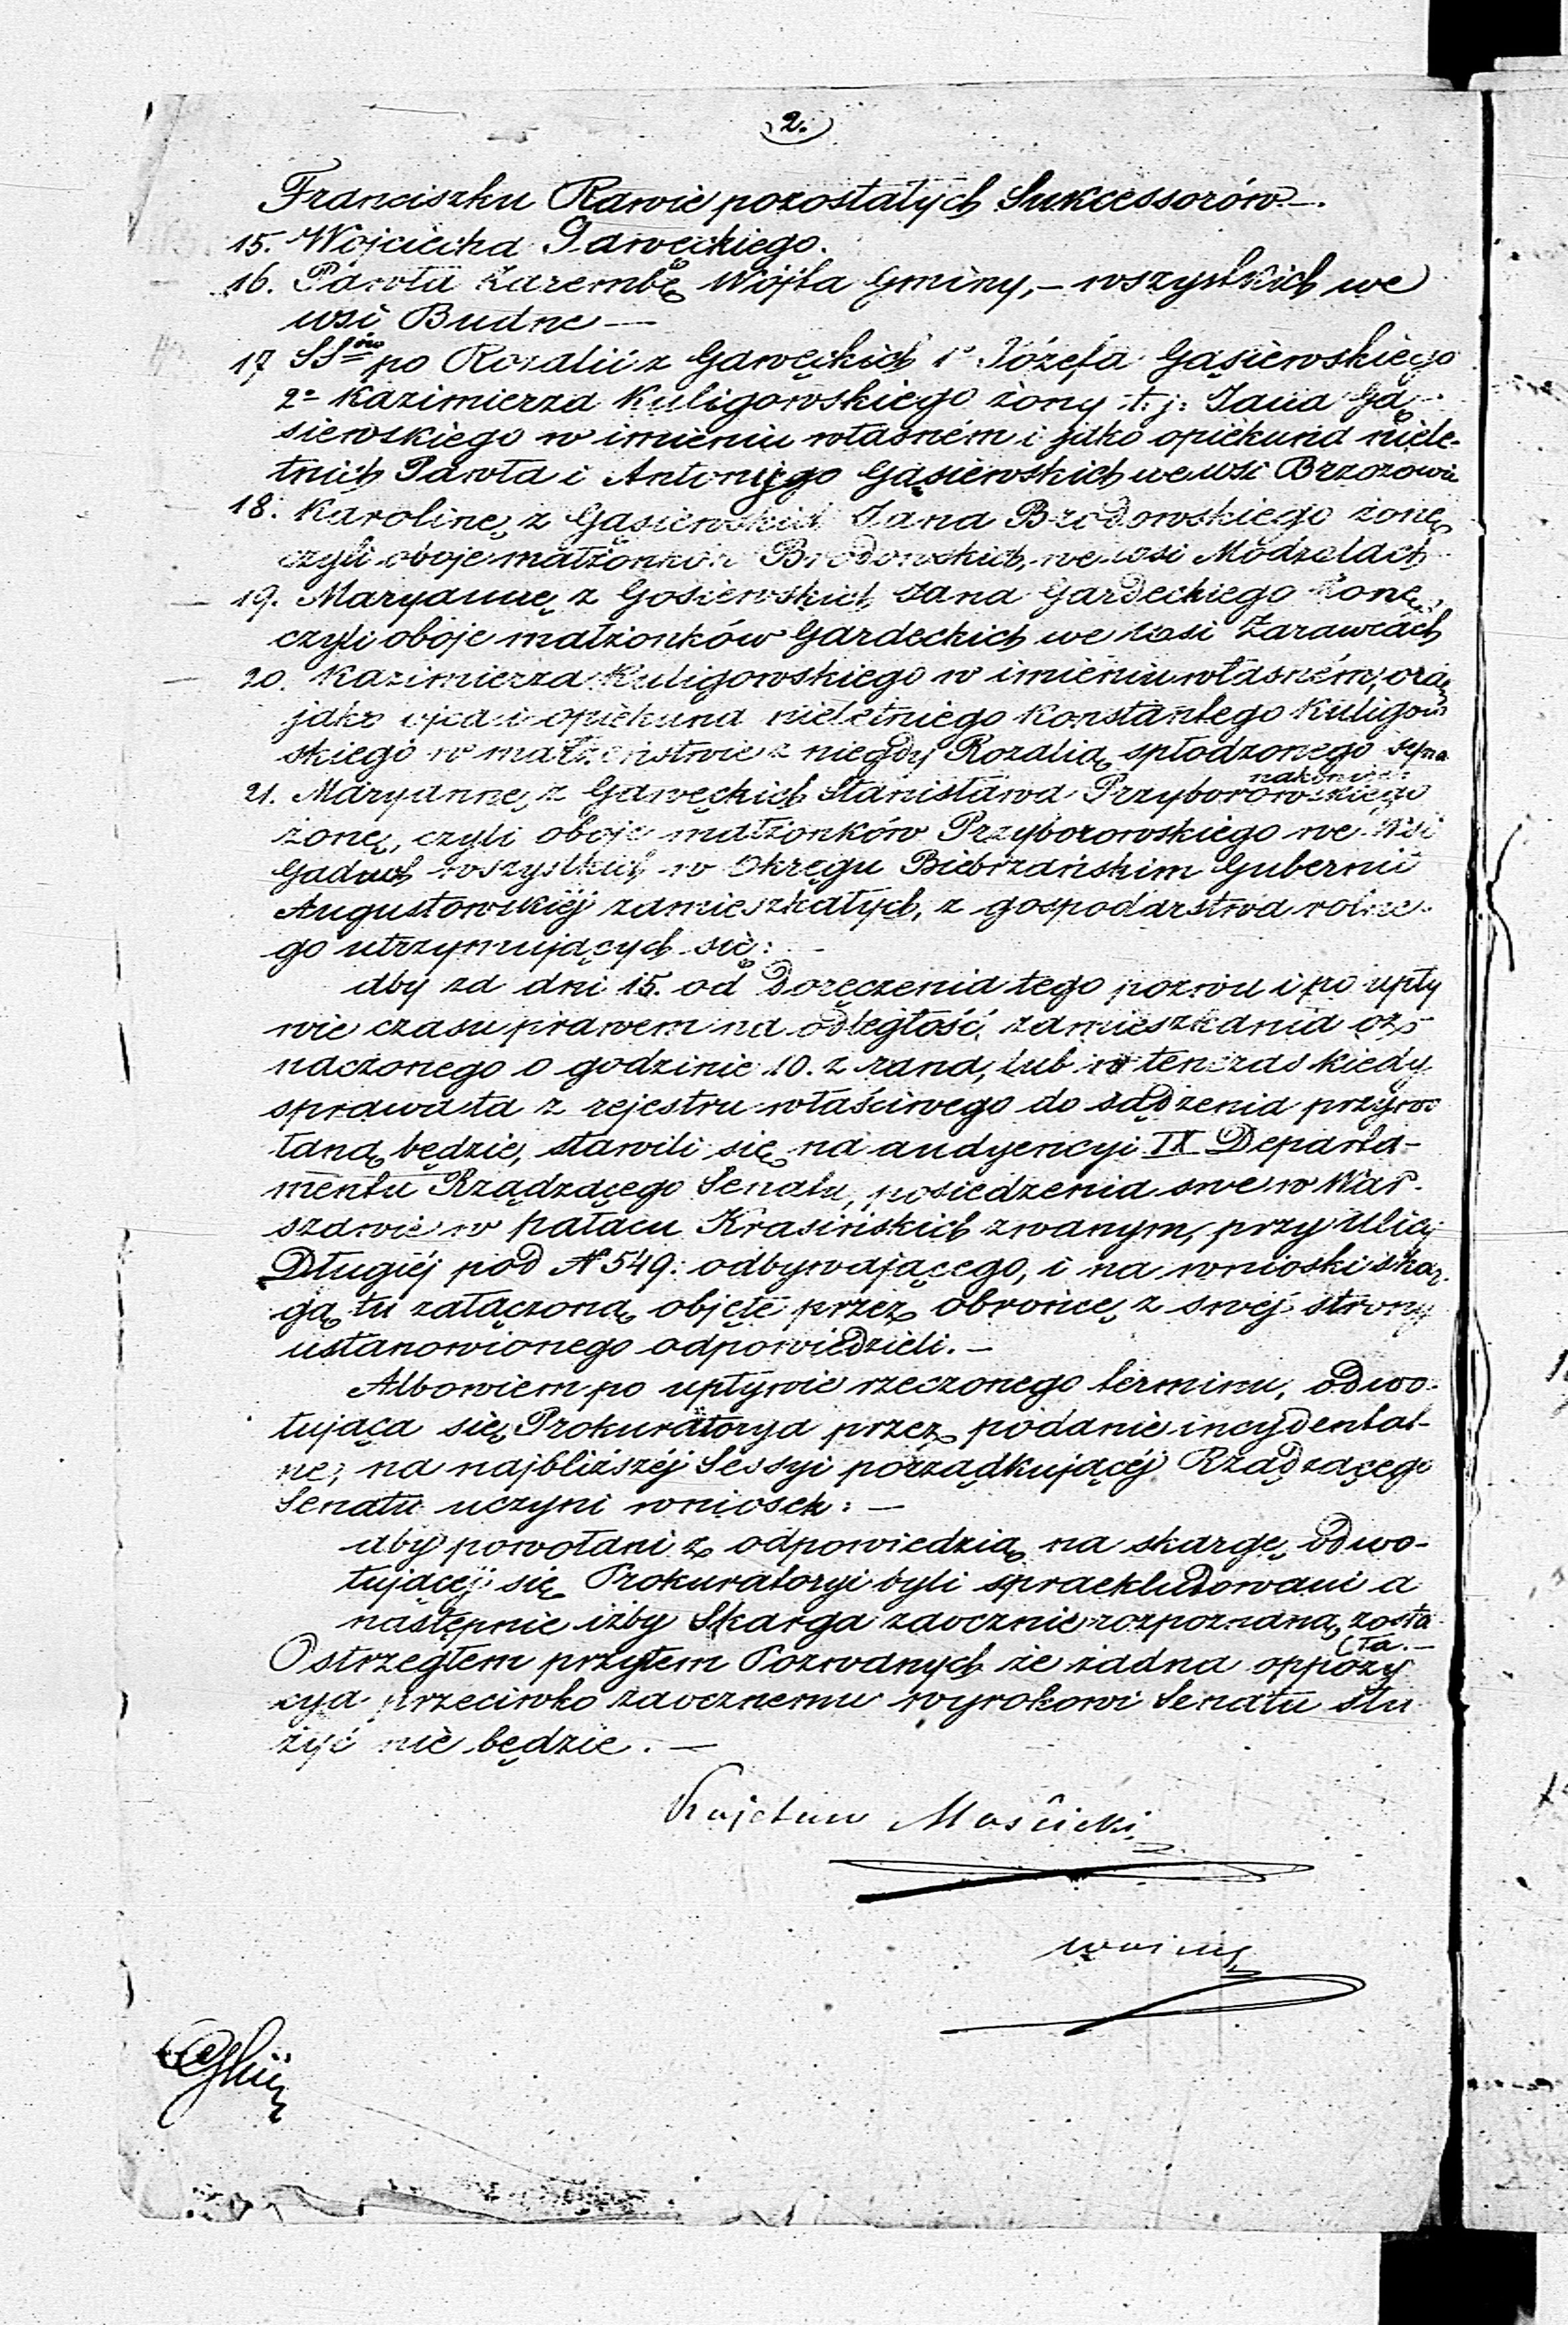 2.
Franciszku Rawie pozostałych Sukcessorów —.
15. Wojciecha Gawęckiego.
16. Pawła Zarembę Wójta Gminy, — wszystkich we
wsi Budne —
17 SSów po Rozalii z Gawęckich 1° Józefa Gąsiewskiego
2° Kazimierza Kuligowskiego żony t. j. Jana Gą-
siewskiego w imieniu własném i jako opiekuna niele-
tnich Pawła i Antoniego Gąsiewskich we wsi Brzozowie
18. Karolinę z Gąsiewskich Jana Brodowskiego żonę
czyli oboje małżonków Brodowskich, we wsi Modzelach
19. Maryannę z Gosiewskich Jana Gardeckiego żonę,
czyli oboje małżonków Gardeckich we wsi Żarawcach
20. Kazimierza Kuligowskiego w imieniu własném, oraz
jako ojca i opiekuna nieletniego Konstantego Kuligow
skiego w małżeństwie z niegdy Rozalią spłodzonego syna
nakoniec
21. Maryannę z Gawęckich Stanisława Przyborowskiego
żonę, czyli oboje małżonków Przyborowskiego we Wsi
wszystkich w Okręgu Biebrzańskim Gubernii
Augustowskiéj zamieszkałych, z gospodarstwa rolne-
go utrzymujących się:
aby za dni 15. od doręczenia tego pozwu i po upły
wie czasu prawem na odległość zamieszkania oz
naczonego o godzinie 10. z rana, lub w tenczas kiedy
sprawa ta z rejestru właściwego do sądzenia przywo
łaną będzie, stawili się na audyencyi IX Departa-
mentu Rządzącego Senatu, posiedzenia swe w War-
szawie w pałacu Krasińskich zwanym, przy Ulicy
Długiéj pod N 549: odbywającego, i na wnioski skar-
gą tu załączoną objęte przez obrońcę z swéj strony
ustanowionego odpowiedzieli. —
Albowiem po upływie rzeczonego terminu, odwo-
łująca się Prokuratorya przez podanie incydental-
ne, na najbliższéj Sessyi porządkującéj Rządzącego
Senatu uczyni wniosek: —
aby powołani z odpowiedzią na skargę odwo-
łującéj się Prokuratoryi byli sprekludowani a
następnie iżby Skarga zaocznie rozpoznaną zosta
ła. —
Ostrzegłem przytem Pozwanych że żadna oppozy
cya przeciwko zaocznemu wyrokowi Senatu słu
żyć nie będzie. —
Kajetan Mościcki
woźny